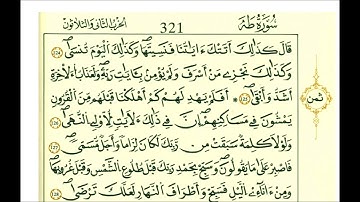 سُورَةُ طَهَ 321 الحزب الثاني والثلاثون
قَالَ كَذَٰلِكَ أَتَتْكَ ءَايَٰتُنَا فَنَسِيتَهَا وَكَذَٰلِكَ اَلْيَوْمَ تُنسَىٰ 124
وَكَذَٰلِكَ نَجْزِے مَنْ أَسْرَفَ وَلَمْ يُومِنۢ بِـَٔايَٰتِ رَبِّهِۦ وَلَعَذَابُ اُلَاخِرَةِ
أَشَدُّ وَأَبْقَىٰٓ 125 أَفَلَمْ يَهْدِ لَهُمْ كَمَ اَهْلَكْنَا قَبْلَهُم مِّنَ اَلْقُرُونِ
ثمن
يَمْشُونَ فِے مَسَٰكِنِهِمُۥٓ إِنَّ فِے ذَٰلِكَ لَأٓيَٰتٖ لِّأُوْلِے اِلنُّهَىٰ 126
وَلَوْلَا كَلِمَةٞ سَبَقَتْ مِن رَّبِّكَ لَكَانَ لِزَاماٗ وَأَجَلٞ مُّسَمّىٗ 127
فَاصْبِرْ عَلَىٰ مَا يَقُولُونَ وَسَبِّحْ بِحَمْدِ رَبِّكَ قَبْلَ طُلُوعِ اِلشَّمْسِ وَقَبْلَ غُرُوبِهَا
وَمِنَ اٰنَآءِے اِليْلِ فَسَبِّحْ وَأَطْرَافَ اَلنَّهَارِ لَعَلَّكَ تَرْضَىٰ 128